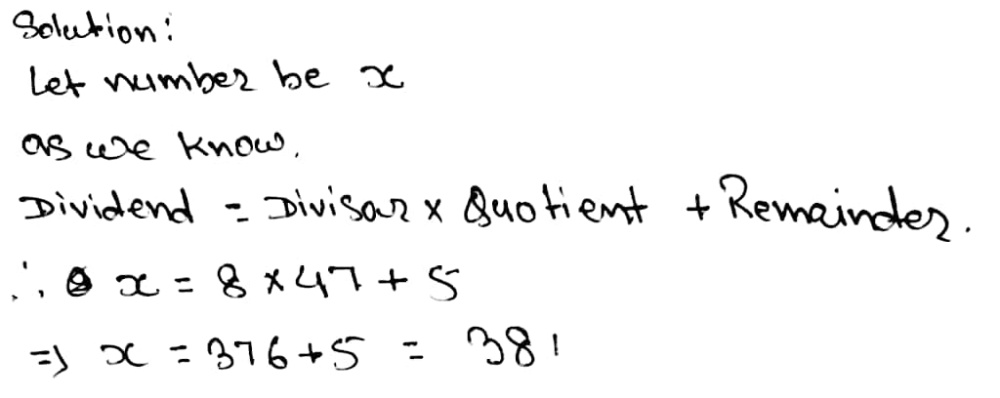 Solution:
Let number be x
as we know,
Dividend = Divisor × Quotient + Remainder.
∴ x = 8 × 47 + 5
⇒ x = 376 + 5 = 381